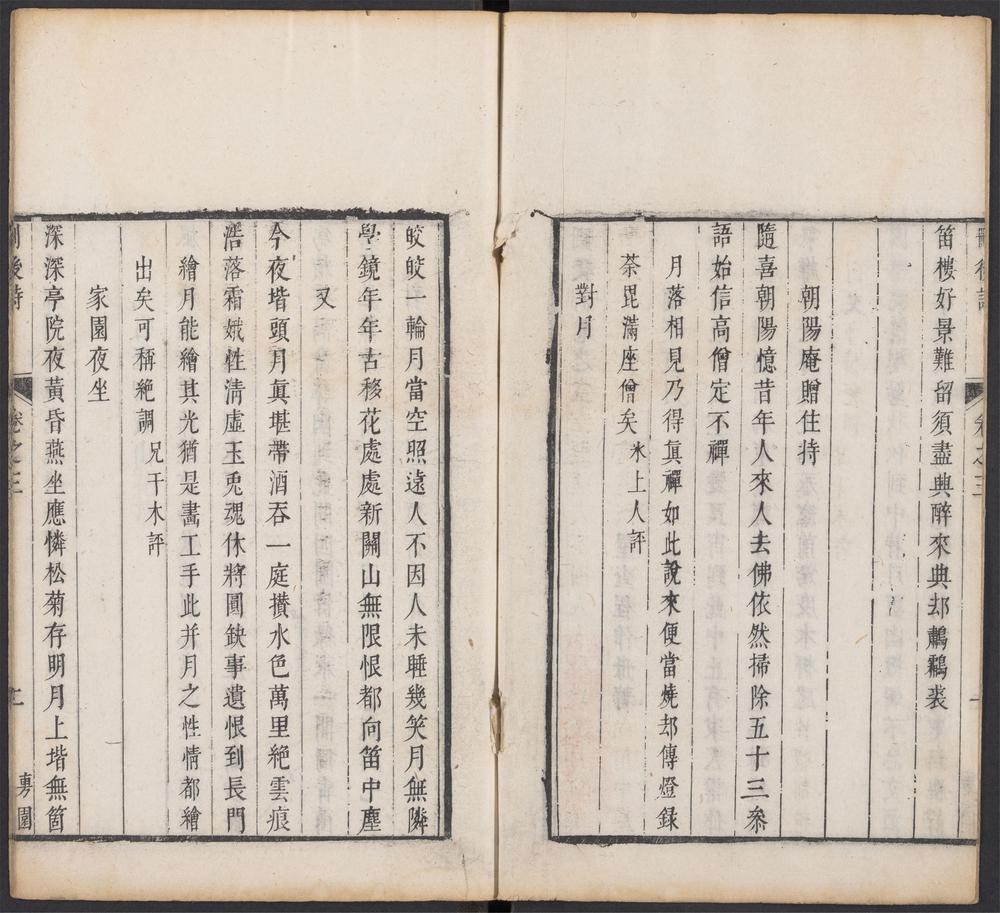 刪後詩 卷之三
笛樓好景難留須盡典醉來典却鷫鸘裘
朝陽庵贈住持
隨喜朝陽憶昔年人來人去佛依然掃除五十三參
語始信高僧定不禪
月落相見乃得眞禪如此說來便當燒却傳燈錄
荼毘滿座僧矣 氷上人評
對月
皎皎一輪月當空照遠人不因人未睡幾笑月無隣
學鏡年年古移花處處新關山無限恨都向笛中塵
又
今夜堦頭月眞堪帶酒吞一庭攢水色萬里絕雲痕
落霜娥性淸虛玉兎魂休將圓缺事遺恨到長門
繪月能繪其光猶是畵工手此并月之性情都繪
出矣可稱絕調 兄干木評
家園夜坐
深深亭院夜黃昏燕坐應憐松菊存明月上堦無箇
刪後詩 卷之三 旉園